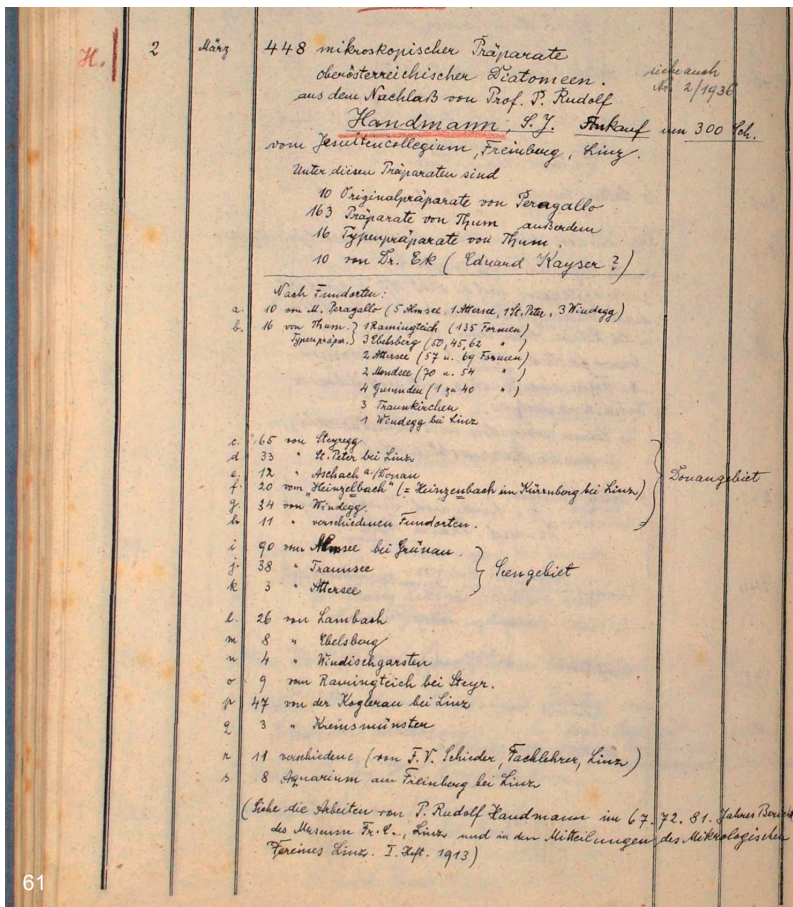 H. 2 März 448 mikroskopischer Präparate
oberösterreichischer Diatomeen.
siehe auch
No. 2/1936
aus dem Nachlaß von Prof. P. Rudolf
Handmann, S.J. Ankauf um 300 Sch.
vom Jesuitencollegium, Freinberg, Linz.
Unter diesen Präparaten sind
10 Originalpräparate von Peragallo
163 Präparate von Thum außerdem
16 Typenpräparate von Thum.
10 von Dr. Ek (Eduard Kayser?)
Nach Fundorten:
a. 10 von M. Peragallo (5 Almsee, 1 Attersee, 1 St. Peter, 3 Windegg)
b. 16 von Thum. } 1 Ramingteich (135 Formen)
Typenpräpa. } 3 Ebelsberg (50, 45, 62 " )
2 Attersee (57 u. 69 Formen)
2 Mondsee (70 u. 54 " )
4 Gmunden (1 zu 40 " )
3 Traunkirchen
1 Windegg bei Linz
c. 65 von Steyregg
d 33 " St. Peter bei Linz
e. 12 " Aschach a./Donau
f. 20 vom "Heinzelbach" (= Heinzenbach im Kürnberg bei Linz)
g. 34 von Windegg.
h 11 " verschiedenen Fundorten.
Donaugebiet
i 90 vom Almsee bei Grünau.
j. 38 " Traunsee
k 3 " Attersee
Seengebiet
l. 26 von Lambach
m 8 " Ebelsberg
n 4 " Windischgarsten
o 9 vom Ramingteich bei Steyr.
p 47 von der Koglerau bei Linz
q 3 " Kremsmünster
r 11 verschiedene (von F. V. Schieder, Fachlehrer, Linz)
s 8 Aquarium am Freinberg bei Linz
(Siehe die Arbeiten von P. Rudolf Handmann im 67. 72. 81. Jahres Bericht
des Museum Fr. C., Linz und in den Mitteilungen des Mikrologischen
Vereines Linz. I. Heft. 1913)
61